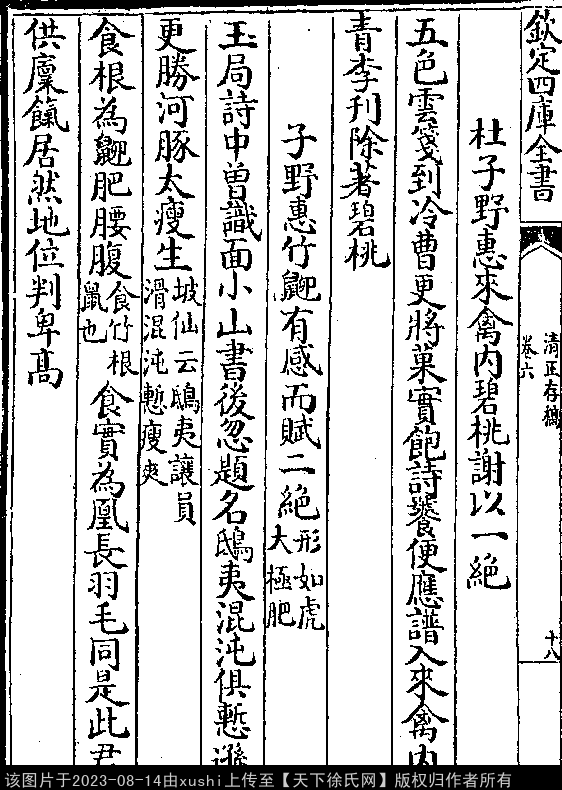 欽定四庫全書
清正存稿
卷六
十八
杜子野惠來禽内碧桃謝以一絶
五色雲箋到冷曹更將菓實飽詩饕便應譜入來禽内
青李刋除著碧桃
子野惠竹䶉有感而賦二絶形如虎大極肥
玉局詩中曽識面小山書後忽題名鴟夷混沌俱慙遜
更勝河豚太瘦生坡仙云鴟夷讓員滑混沌慙瘦爽
食根為䶉肥腰腹食竹根鼠也食實為凰長羽毛同是此君
供廩餼居然地位判卑髙
该图片于2023-08-14由xushi上传至【天下徐氏网】版权归作者所有